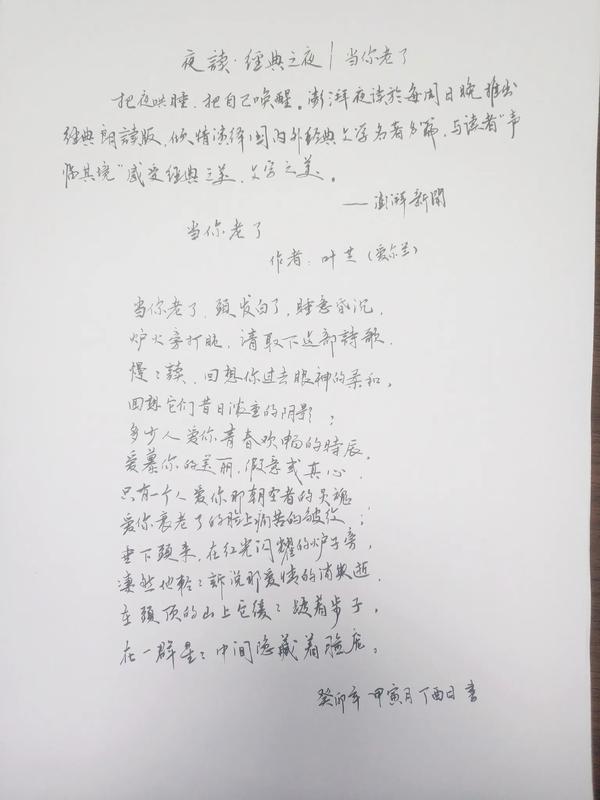 夜讀·經典之夜|当你老了
把夜哄睡，把自己唤醒。澎湃夜读於每周日晚推出
經典朗讀版，倾情演绎国内外經典文学名著名篇，与读者“声
临其境”感受经典之美、文字之美。
——澎湃新聞
当你老了
作者：叶芝（爱尔兰）
当你老了，頭发白了，睡意昏沉，
炉火旁打盹，请取下这部詩歌，
慢々讀，回想你过去眼神的柔和，
回想它们昔日浓重的阴影；
多少人爱你青春欢畅的時辰，
爱慕你的美丽，假意或真心，
只有一个人爱你那朝圣者的灵魂，
爱你衰老了的脸上痛苦的皱纹；
垂下頭来，在红光闪耀的炉子旁，
凄然地輕々訴说那爱情的消逝，
在頭顶的山上它缓々踱着步子，
在一群星々中间隐藏着脸庞。
癸卯年 甲寅月 丁酉日 書